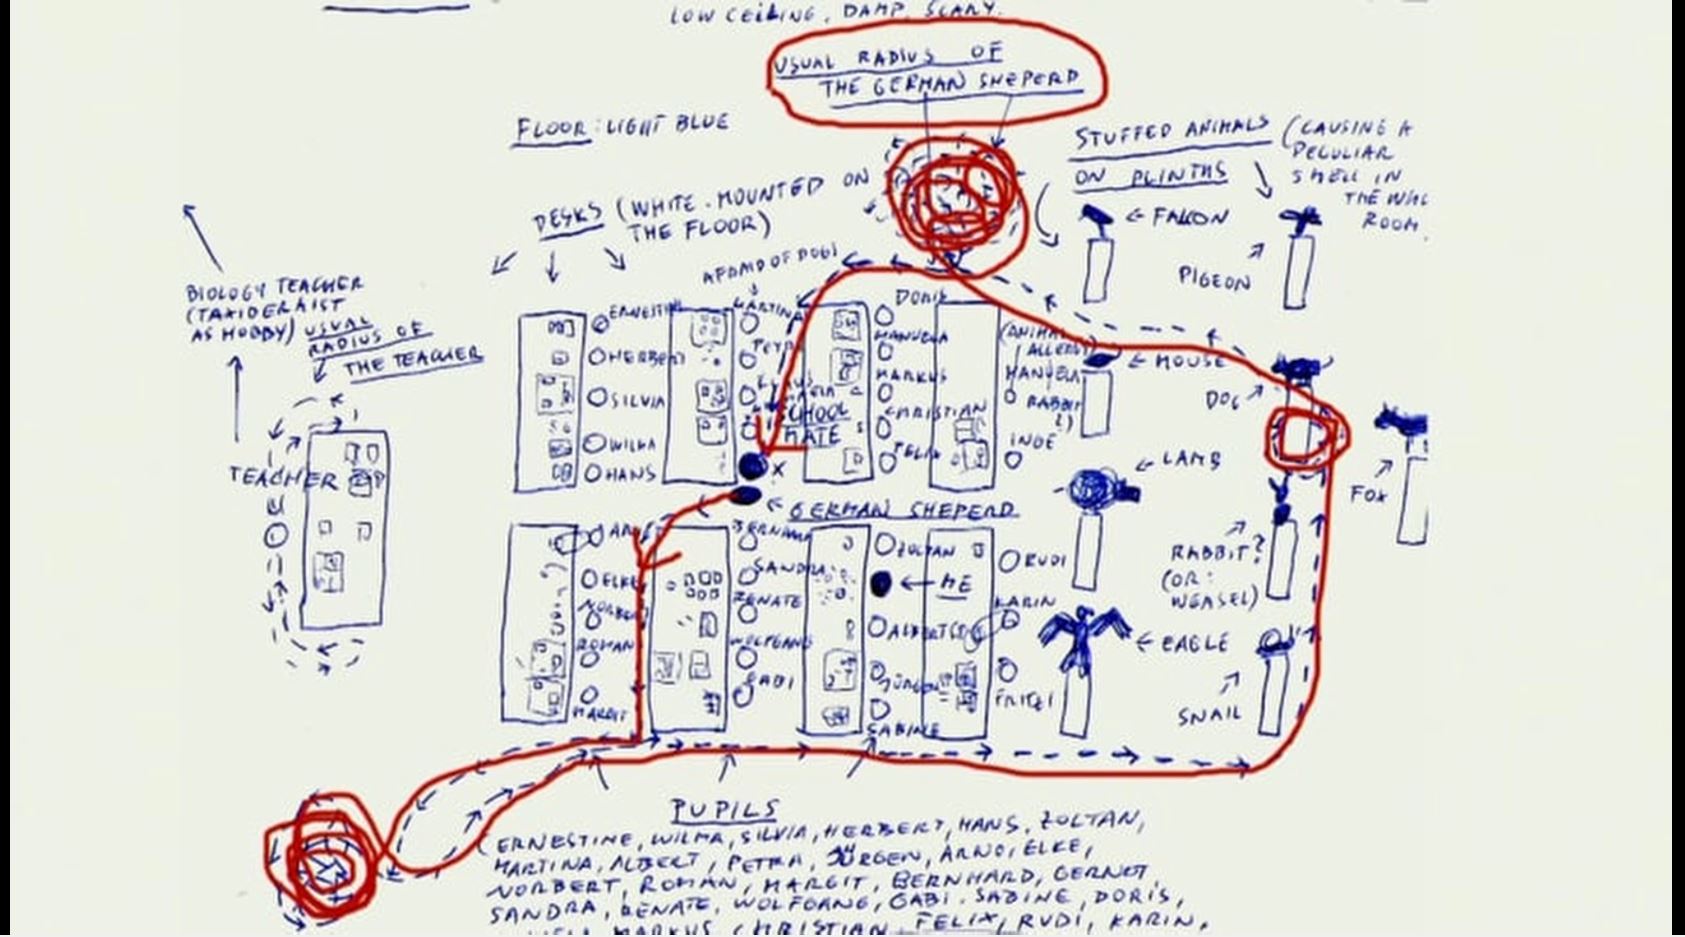 LOW CEILING, DAMP, SCARY.
USUAL RADIUS OF
THE GERMAN SHEPERD
FLOOR: LIGHT BLUE
STUFFED ANIMALS
ON PLINTHS
(CAUSING A
PECULIAR
SMELL IN
THE
ROOM.
DESKS (WHITE. MOUNTED ON
THE FLOOR)
← FALCON
PIGEON
AFRAID OF DOGS
BIOLOGY TEACHER
(TAXIDERMIST
AS HOBBY) USUAL
RADIUS OF
THE TEACHER
ERNESTINE
MARTINA
DORIS
HERBERT
PETRA
MANUELA
(ANIMAL
ALLERGY)
← MOUSE
SILVIA
MARKUS
MANUELA
RABBIT
DOG
SCHOOL
MATE
CHRISTIAN
WILMA
FELIX
INGE
HANS
X
← LAMB
FOX
TEACHER
← GERMAN SHEPERD
ZOLTAN
RUDI
SANDRA
ELKE
← ME
RABBIT?
(OR:
WEASEL)
RENATE
NORBERT
KARIN
ALBERT
ROMAN
WOLFGANG
← EAGLE
GABI
JÜRGEN
MARGIT
SABINE
SNAIL
PUPILS
(ERNESTINE, WILMA, SILVIA, HERBERT, HANS, ZOLTAN,
MARTINA, ALBERT, PETRA, JÜRGEN, ARNO, ELKE,
NORBERT, ROMAN, MARGIT, BERNHARD, GERNOT,
SANDRA, RENATE, WOLFGANG, GABI, SABINE, DORIS,
MARKUS, CHRISTIAN, FELIX, RUDI, KARIN,